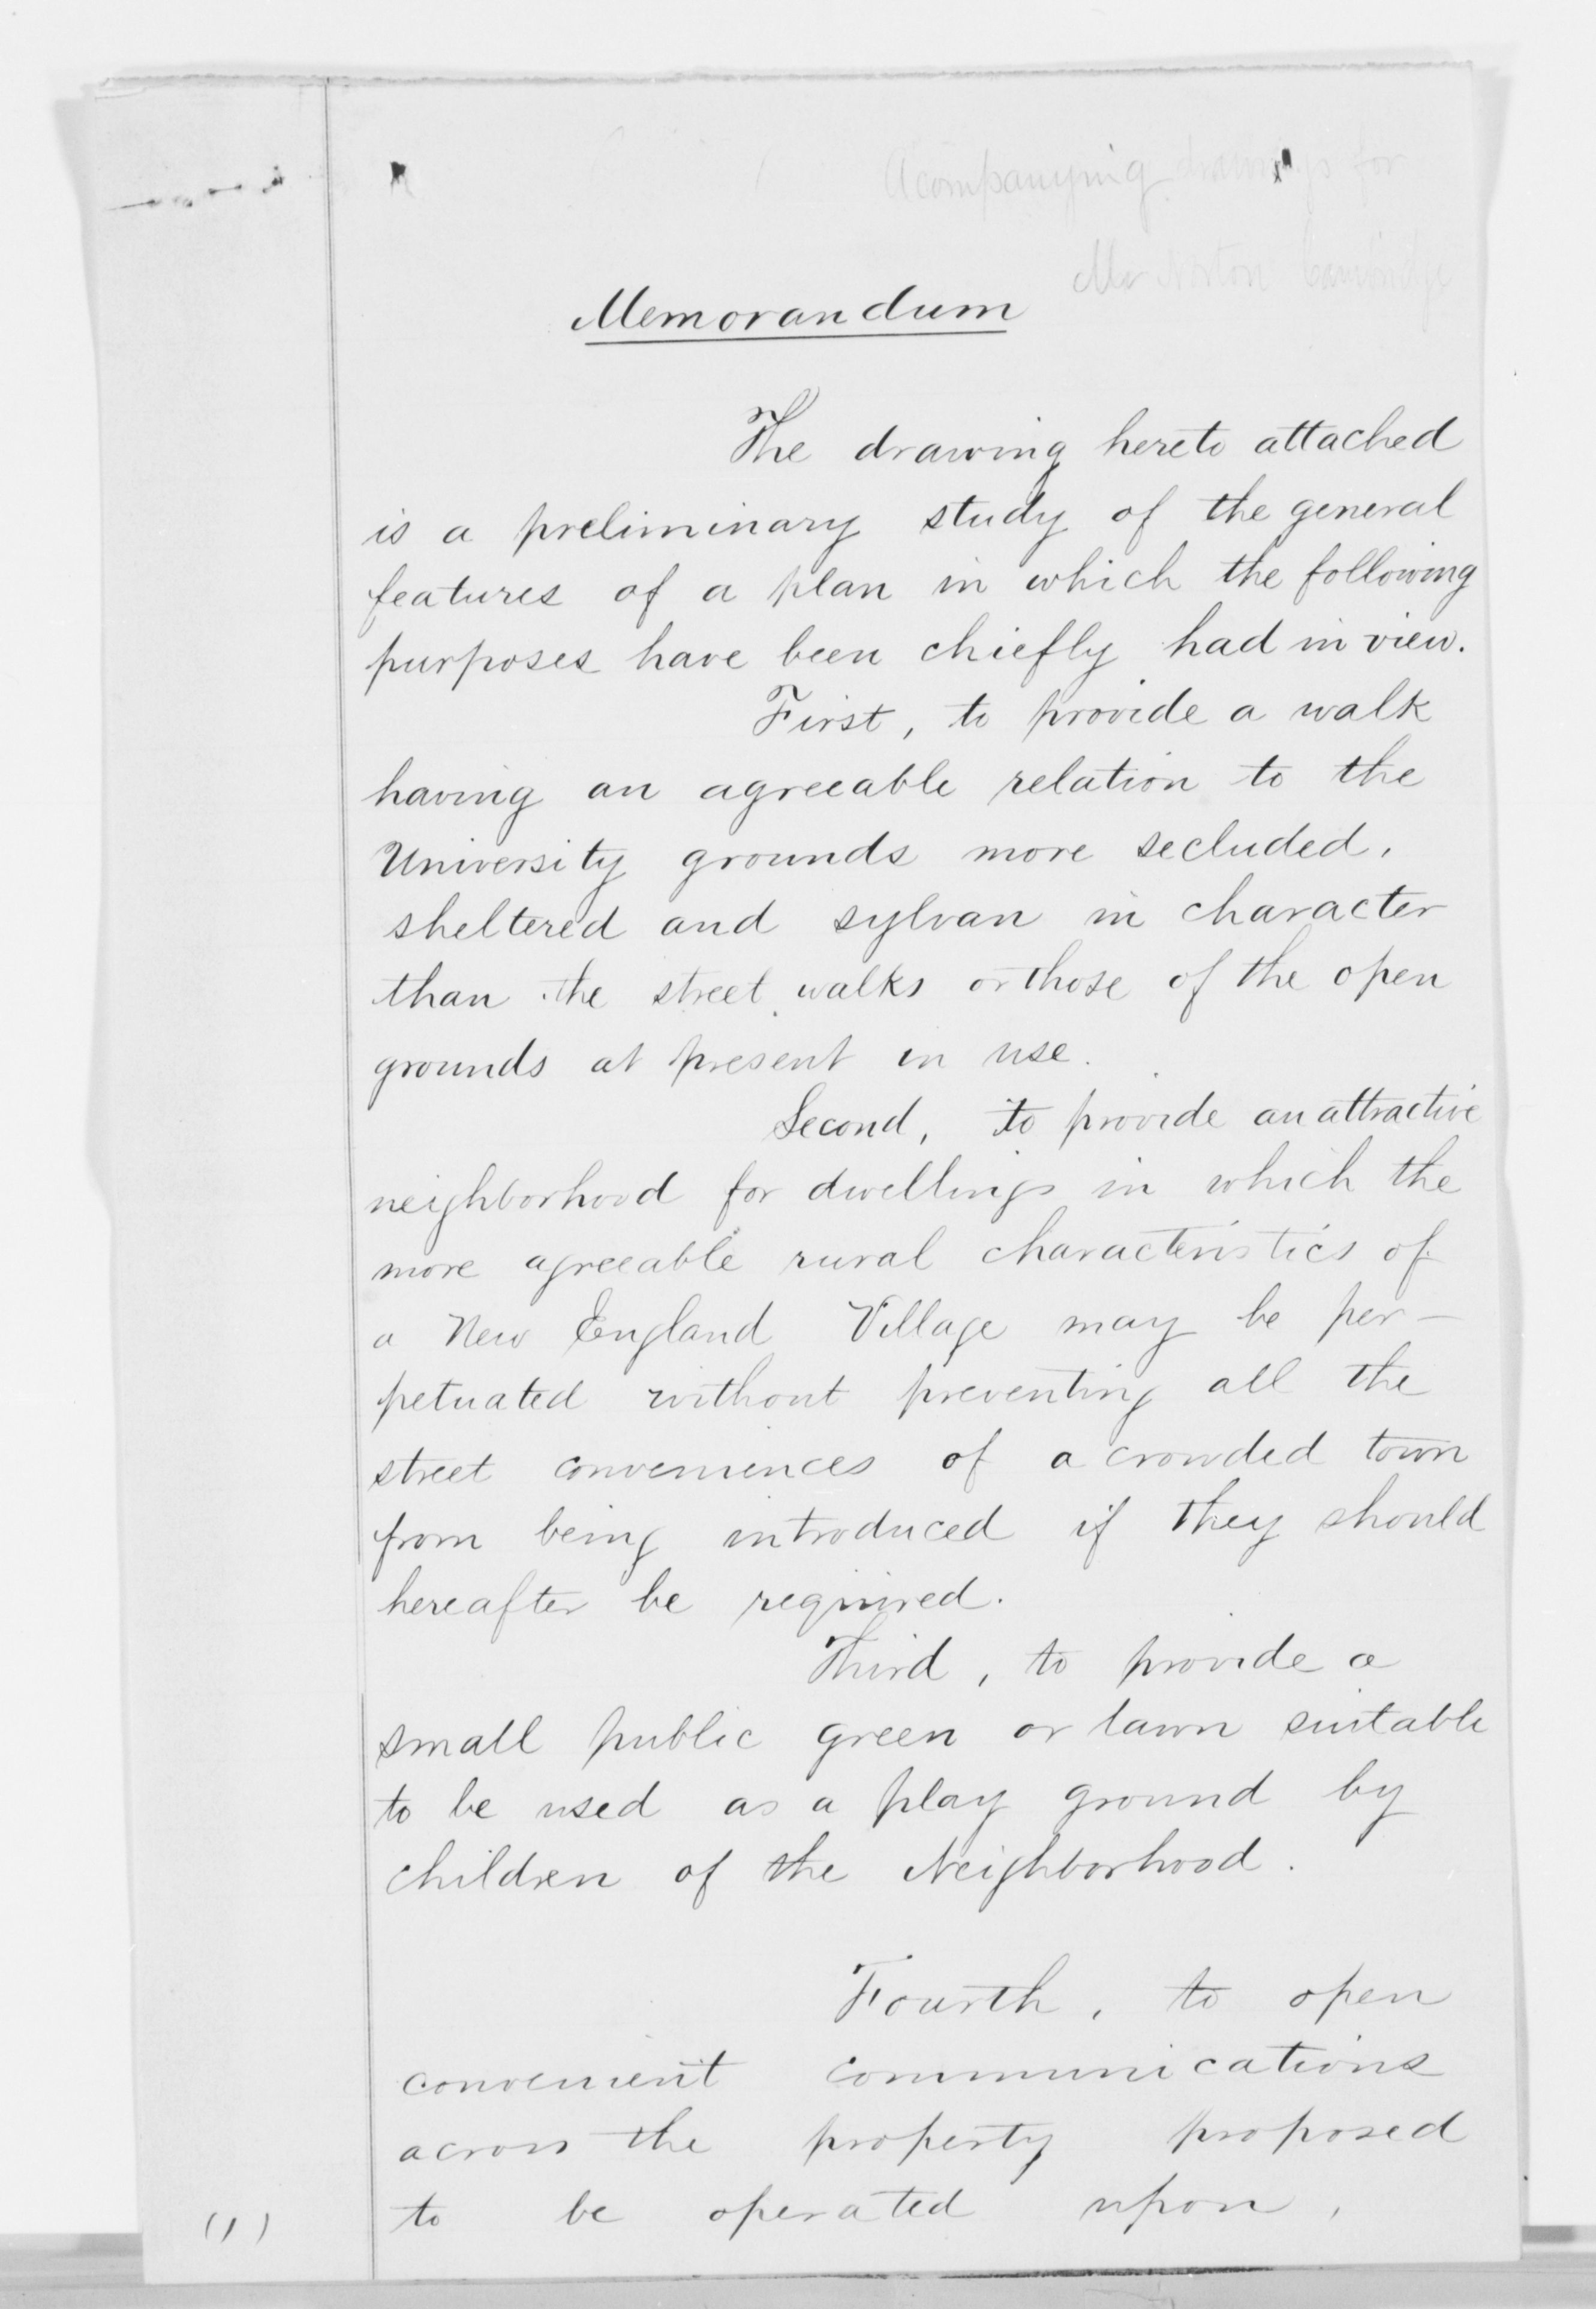 Acompanying drawings for
Mr Norton Cambridge
Memorandum
The drawing hereto attached
is a preliminary study of the general
features of a plan in which the following
purposes have been chiefly had in view.
First, to provide a walk
having an agreeable relation to the
University grounds more secluded,
sheltered and sylvan in character
than the street walks or those of the open
grounds at present in use.
Second, to provide an attractive
neighborhood for dwellings in which the
more agreeable rural characteristics of
a New England Village may be per-
petuated without preventing all the
street conveniences of a crowded town
from being introduced if they should
hereafter be required.
Third, to provide a
small public green or lawn suitable
to be used as a play ground by
children of the Neighborhood.
Fourth, to open
convenient communications
across the property proposed
to be operated upon,
(1)